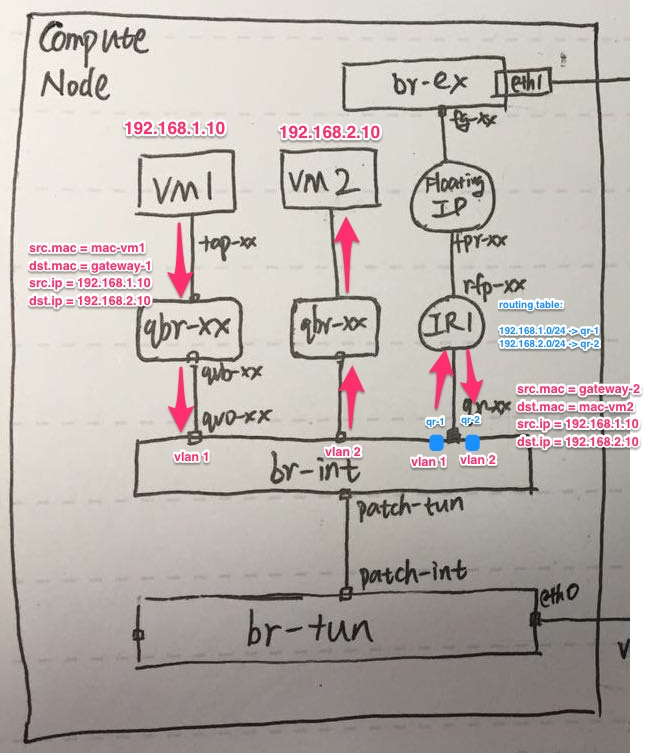 Compute
Node
br-ex
eth1
fg-xx
192.168.1.10
192.168.2.10
VM1
VM2
Floating
IP
tap-xx
fpr-xx
src.mac = mac-vm1
dst.mac = gateway-1
src.ip = 192.168.1.10
dst.ip = 192.168.2.10
rfp-xx
routing table:
192.168.1.0/24 -> qr-1
192.168.2.0/24 -> qr-2
qbr-xx
qbr-xx
IR1
qvb-xx
qvo-xx
qr-xx
src.mac = gateway-2
dst.mac = mac-vm2
src.ip = 192.168.1.10
dst.ip = 192.168.2.10
qr-1
qr-2
vlan 1
vlan 2
vlan 1
vlan 2
br-int
patch-tun
patch-int
eth0
br-tun
V